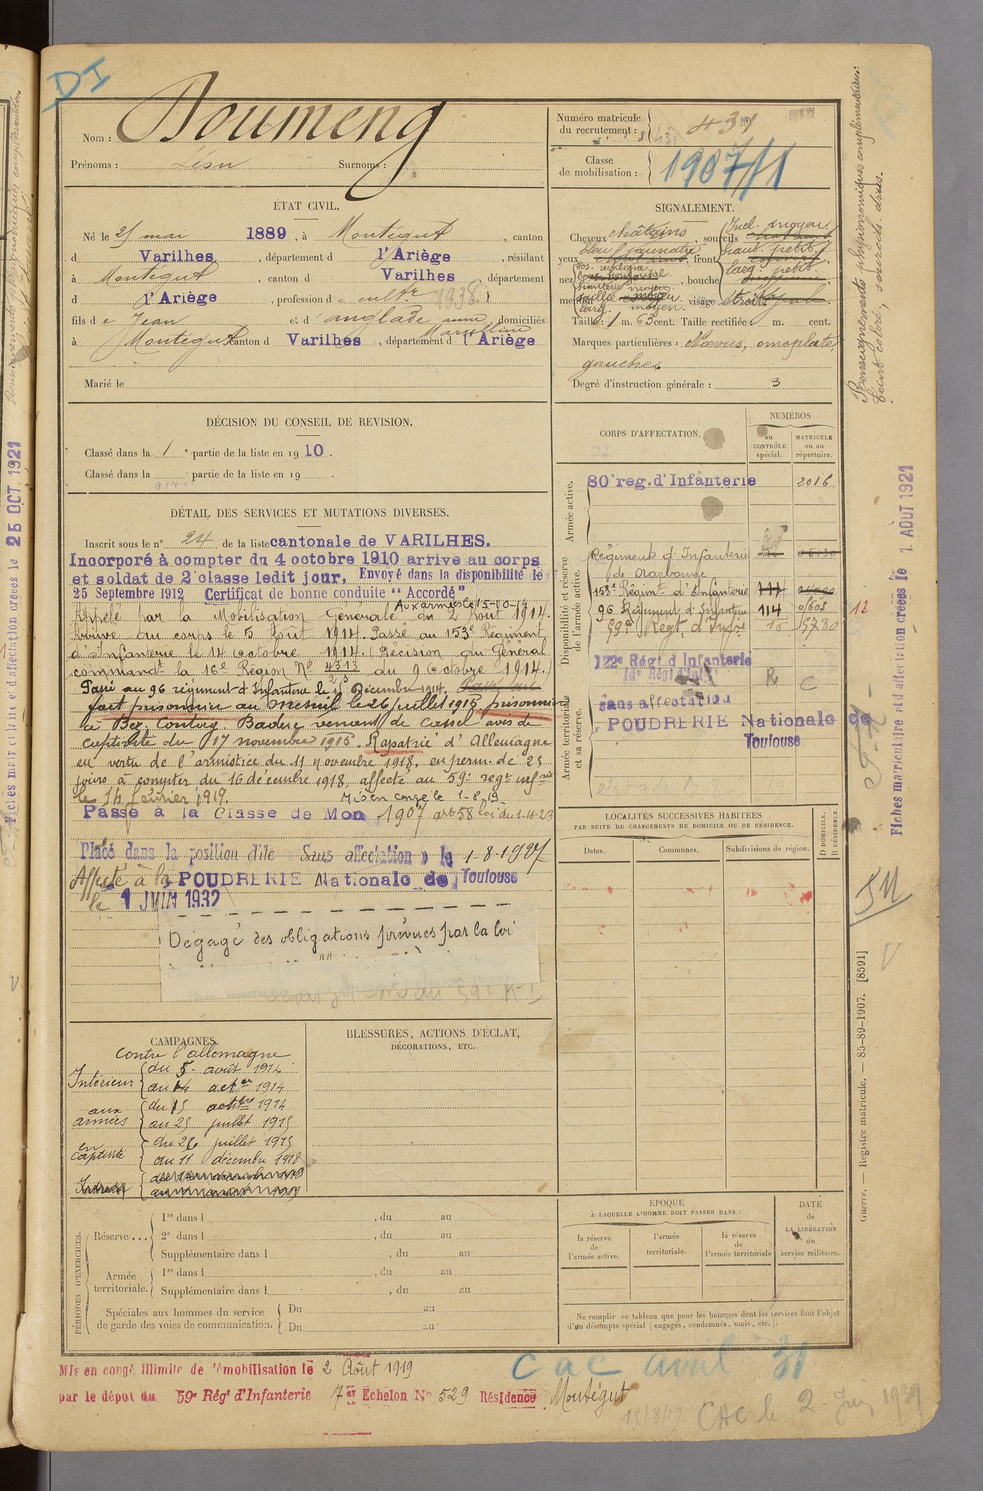 DI
Nom : Doumeng
Prénoms : Léon Surnoms :
Numéro matricule
du recrutement : 437
Classe
de mobilisation : 1907/1
ÉTAT CIVIL.
Né le 25 mai 1889, à Montégut, canton
d Varilhes, département d l'Ariège, résidant
à Montégut, canton d Varilhes, département
d l'Ariège, profession d cultr 1938.
fils de Jean et d anglade anne Marcelline domiciliés
à Montégut canton d Varilhes, département d l'Ariège
Marié le
SIGNALEMENT.
Cheveux châtains, sourcils
yeux , front
nez , bouche
menton , visage étroit
Taille : 1 m. 63 cent. Taille rectifiée : m. cent.
Marques particulières : Nœvus, omoplate
gauche.
Degré d'instruction générale : 3
Renseignements physionomiques complémentaires :
teint coloré, sourcils drus.
DÉCISION DU CONSEIL DE REVISION.
Classé dans la 1e partie de la liste en 1910.
Classé dans la partie de la liste en 19 .
DÉTAIL DES SERVICES ET MUTATIONS DIVERSES.
Inscrit sous le n° 24 de la liste cantonale de VARILHES.
Incorporé à compter du 4 octobre 1910 arrivé au corps
et soldat de 2e classe ledit jour. Envoyé dans la disponibilité le
25 Septembre 1912 Certificat de bonne conduite "Accordé"
Aux armées le 15-10-14
Appelé par la Mobilisation Générale du 2 Août 1914.
Arrivé au corps le 5 Août 1914. Passé au 153e Régiment
d'Infanterie le 14 octobre 1914. (Décision du Général
commandt la 16e Région N° 4313 du 9 octobre 1914.)
Passé au 96 régiment d'Infanterie le 11 Décembre 1914.
fait prisonnier au Mesnil le 26 juillet 1915, prisonnier
venant de Cassel avis de
captivité du 17 novembre 1915. Rapatrié d'Allemagne
en vertu de l'armistice du 11 novembre 1918, en perm. de 25
jours à compter du 16 décembre 1918, affecté au 59e regt infrie
le 14 février 1919. Mis en congé le 1-8-19
Passé à la Classe de Mon 1907 art 58 loi du 1-4-23
Placé dans la position dite "Sans affectation" le 1-8-1927
Affecté à la POUDRERIE Nationale de Toulouse
le 1 JUIN 1932
Dégagé des obligations prévues par la loi
CORPS D'AFFECTATION.
NUMÉROS
au CONTRÔLE spécial.
MATRICULE ou au répertoire.
Armée active.
80e reg. d'Infanterie 2016
Disponibilité et réserve de l'armée active.
Régiment d'Infanterie
de Narbonne
153e Régimt d'Infanterie
96 Régiment d'Infanterie 114 0/608
59e Regt d'Infrie 15 5780
Armée territoriale et sa réserve.
122e Régt d'Infanterie
R C
sans affectation
POUDRERIE Nationale de
Toulouse
LOCALITÉS SUCCESSIVES HABITÉES
PAR SUITE DE CHANGEMENTS DE DOMICILE OU DE RÉSIDENCE.
Dates. Communes. Subdivisions de région.
D DOMICILE. R RÉSIDENCE
CAMPAGNES.
Contre l'allemagne
Intérieur du 5 août 1914
au 14 octre 1914
aux armées du 15 octbre 1914
au 25 juillet 1915
en captivité du 26 juillet 1915
au 11 décembre 1918
BLESSURES, ACTIONS D'ÉCLAT,
DÉCORATIONS, ETC.
PÉRIODES D'EXERCICES.
Réserve ...
1re dans l , du au
2e dans l , du au
Supplémentaire dans l , du au
Armée territoriale.
1re dans l , du au
Supplémentaire dans l , du au
Spéciales aux hommes du service
de garde des voies de communication.
Du au
Du au
EPOQUE
À LAQUELLE L'HOMME DOIT PASSER DANS :
la réserve de l'armée active.
l'armée territoriale.
la réserve de l'armée territoriale
DATE de LA LIBÉRATION du service militaire.
Ne remplir ce tableau que pour les hommes dont les services font l'objet
d'un décompte spécial (engagés, condamnés, omis, etc.).
Mis en congé illimité de démobilisation le 2 Août 1919
par le dépot du 59e Rég' d'Infanterie 7e Echelon N° 529 Résidence Montégut
CAC avril 31
CAC le 2 Juin 1939
Fiches matriculaire et d'affectation créées le 25 OCT. 1921
Fiches matriculaire et affectation créées le 1 AOUT 1921
12
Guerre. — Registre matricule. — 85-89-1907. [8591]